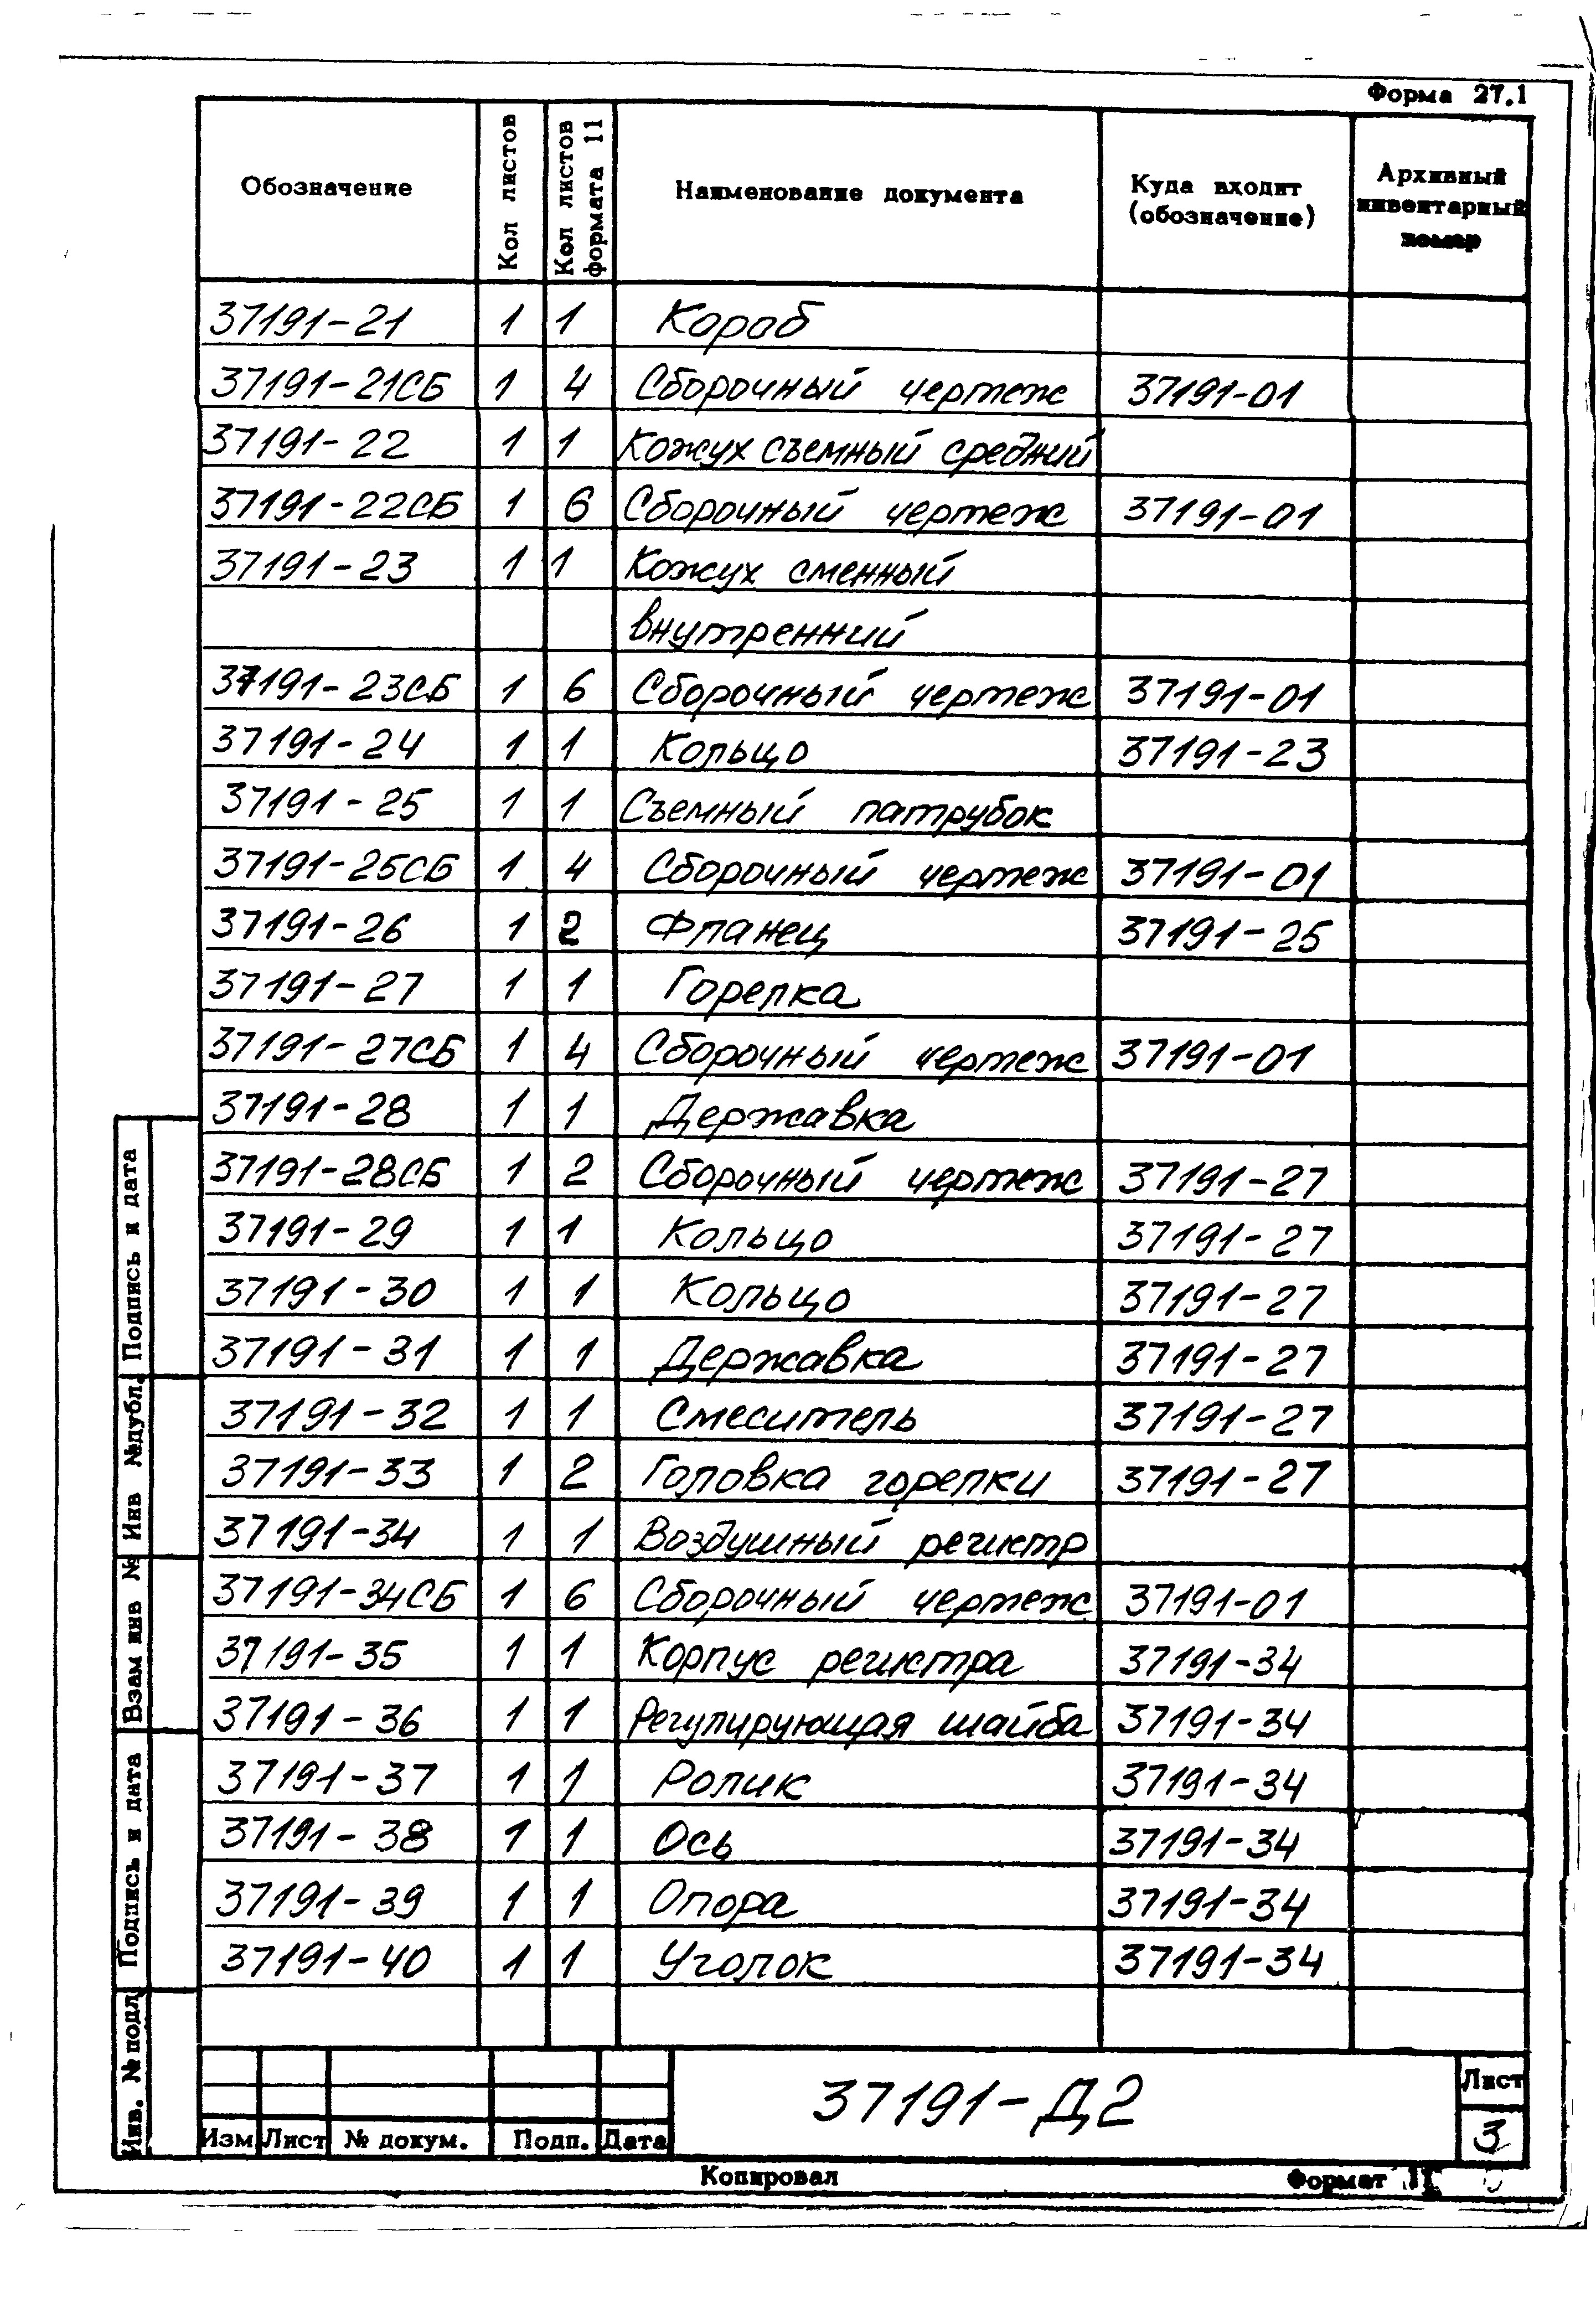 Форма 27.1
Обозначение Кол листов Кол листов формата 11 Наименование документа Куда входит (обозначение) Архивный инвентарный номер
37191-21 1 1 Короб
37191-21СБ 1 4 Сборочный чертеж 37191-01
37191-22 1 1 Кожух съемный средний
37191-22СБ 1 6 Сборочный чертеж 37191-01
37191-23 1 1 Кожух сменный
внутренний
37191-23СБ 1 6 Сборочный чертеж 37191-01
37191-24 1 1 Кольцо 37191-23
37191-25 1 1 Съемный патрубок
37191-25СБ 1 4 Сборочный чертеж 37191-01
37191-26 1 2 Фланец 37191-25
37191-27 1 1 Горелка
37191-27СБ 1 4 Сборочный чертеж 37191-01
37191-28 1 1 Державка
37191-28СБ 1 2 Сборочный чертеж 37191-27
37191-29 1 1 Кольцо 37191-27
37191-30 1 1 Кольцо 37191-27
37191-31 1 1 Державка 37191-27
37191-32 1 1 Смеситель 37191-27
37191-33 1 2 Головка горелки 37191-27
37191-34 1 1 Воздушный регистр
37191-34СБ 1 6 Сборочный чертеж 37191-01
37191-35 1 1 Корпус регистра 37191-34
37191-36 1 1 Регулирующая шайба 37191-34
37191-37 1 1 Ролик 37191-34
37191-38 1 1 Ось 37191-34
37191-39 1 1 Опора 37191-34
37191-40 1 1 Уголок 37191-34
Подпись и дата
Инв №дубл.
Взам инв №
Подпись и дата
Инв. №подл
37191-Д2
Лист
3
Изм Лист № докум. Подп. Дата
Копировал Формат 11